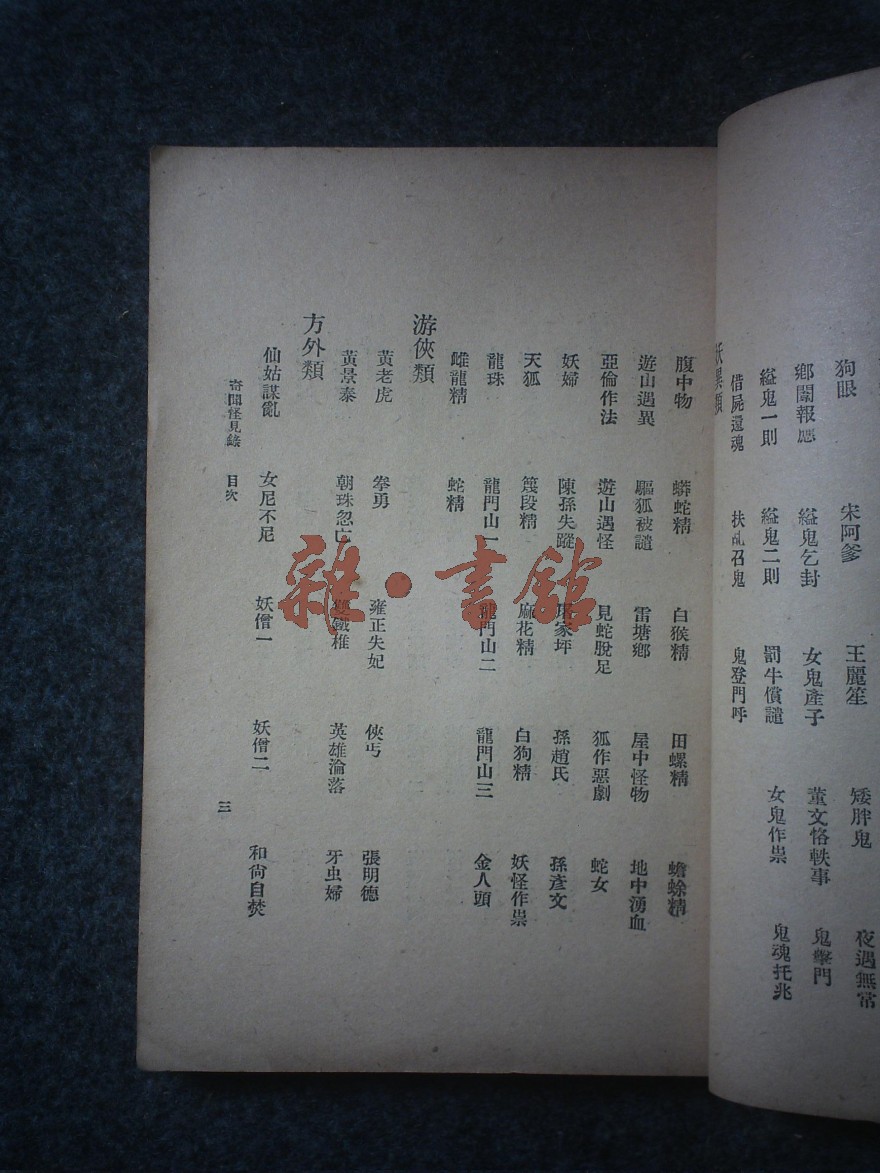 狗眼 宋阿爹 王麗笙 矮胖鬼 夜遇無常
鄉闈報應 縊鬼乞封 女鬼產子 董文恪軼事 鬼擊門
縊鬼一則 縊鬼二則 罰牛償譴 女鬼作祟 鬼魂托兆
借屍還魂 扶乩召鬼 鬼登門呼
妖異類
腹中物 蟒蛇精 白猴精 田螺精 蟾蜍精
遊山遇異 驅狐被譴 雷塘鄉 屋中怪物 地中湧血
亞倫作法 遊山遇怪 見蛇脫足 狐作惡劇 蛇女
妖婦 陳孫失蹤 家坪 孫趙氏 孫彥文
天狐 篾段精 麻花精 白狗精 妖怪作祟
龍珠 龍門山一 龍門山二 龍門山三 金人頭
雌龍精 蛇精
游俠類
黃老虎 拳勇 雍正失妃 俠丐 張明德
黃景泰 朝珠忽亡 雙鐵椎 英雄淪落 牙虫婦
方外類
仙姑謀亂 女尼不尼 妖僧一 妖僧二 和尚自焚
奇聞怪見錄 目次 三
雜·書館